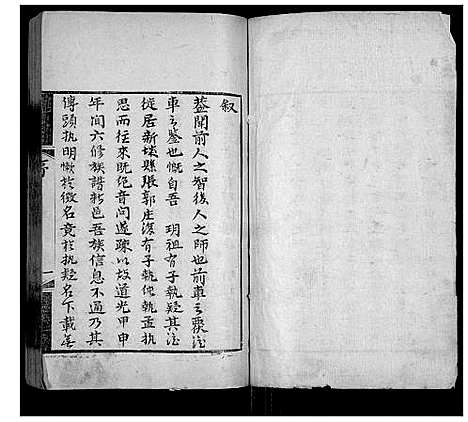 叙
蓋聞前人之智後人之師也前車之覆後
車之鑒也慨自吾 玥祖有子執疑其後
從居新城縣張郭庄後有子執使執孟執
思而往來既絶音問遂疎以故道光甲申
年間六修族譜新邑吾族信息不通乃其
傳頭執明懒於徵名竟於執疑名下載